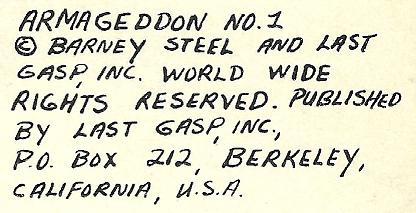 ARMAGEDDON NO.1
© BARNEY STEEL AND LAST
GASP, INC. WORLD WIDE
RIGHTS RESERVED. PUBLISHED
BY LAST GASP, INC.,
P.O. BOX 212, BERKELEY,
CALIFORNIA, U.S.A.